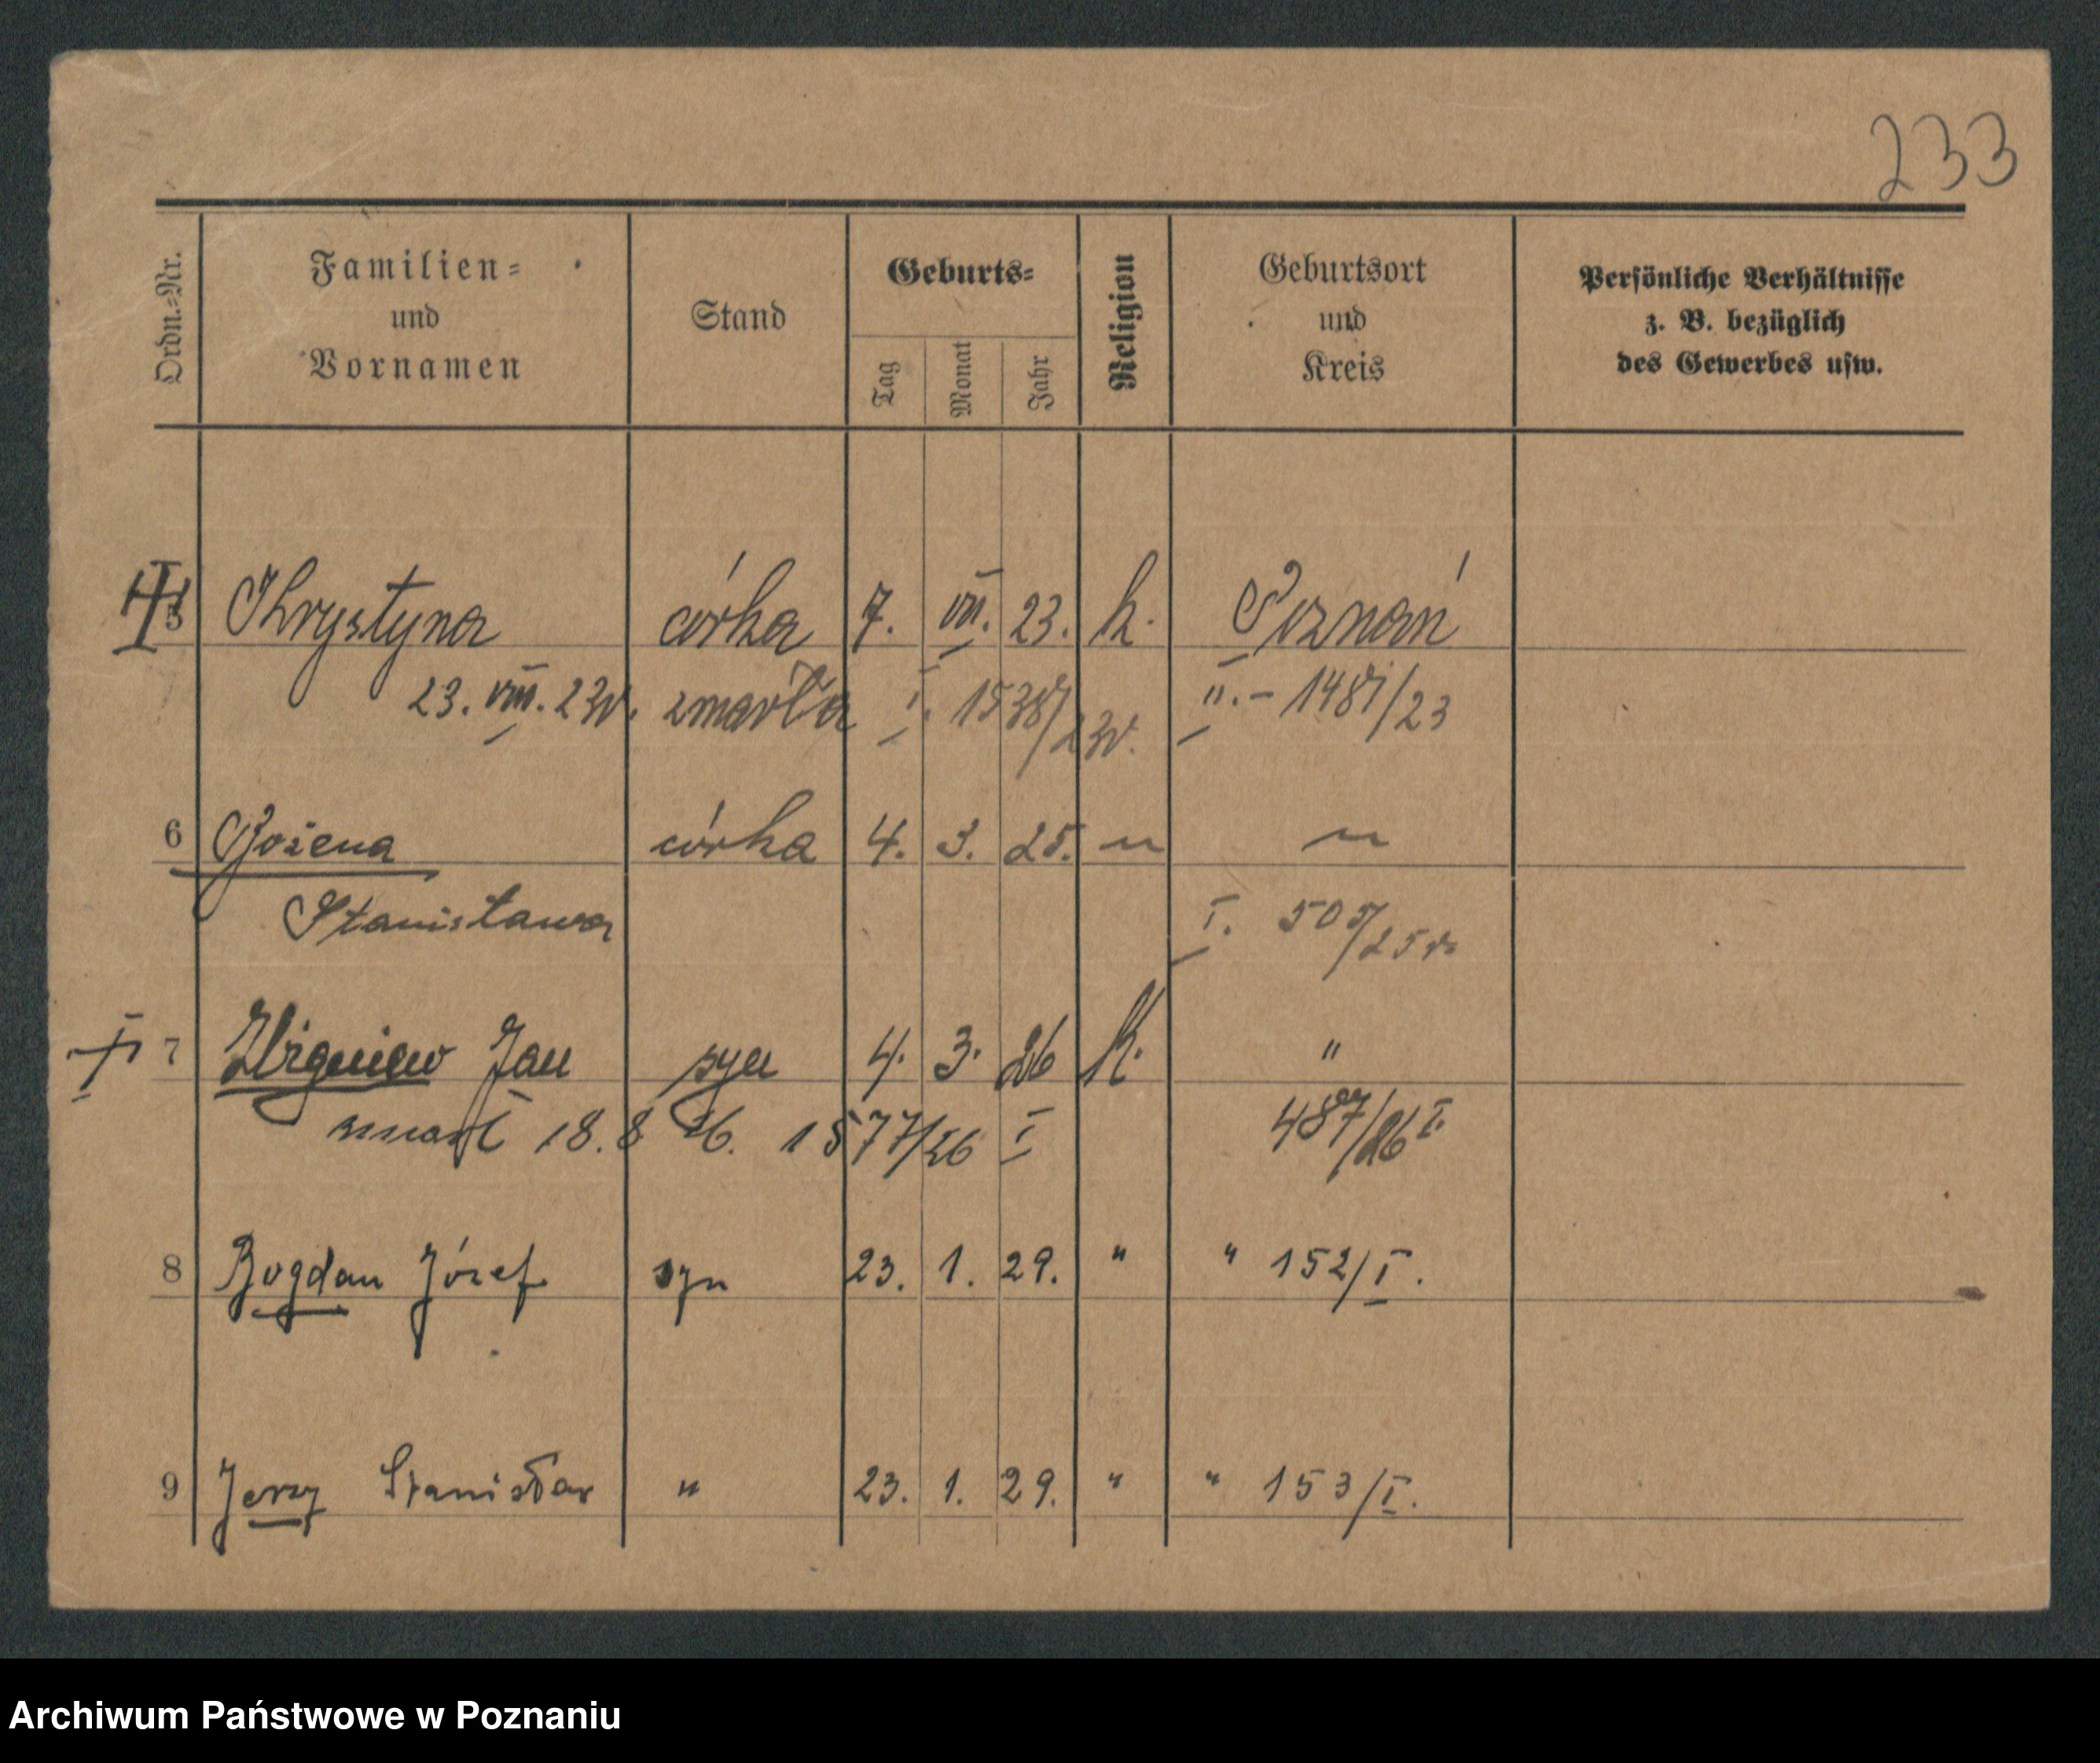 233
Ordn.=Nr.
Familien=
und
Vornamen
Stand
Geburts=
Tag
Monat
Jahr
Religion
Geburtsort
und
Kreis
Persönliche Verhältnisse
z. B. bezüglich
des Gewerbes usw.
5 Khrystyna córka 7. VIII. 23. k. Poznań
23. VIII. 23r. zmarła I. 1538/23r. II. – 1487/23
6 Bożena córka 4. 3. 25. " "
Stanisława I. 505/25 r.
7 Zbigniew Jan syn 4. 3. 26 k. "
zmarł 18. 8 26. 1577/26 I 487/26 I.
8 Bogdan Józef syn 23. 1. 29. " " 152/I.
9 Jerzy Stanisław " 23. 1. 29. " " 153/I.
Archiwum Państwowe w Poznaniu